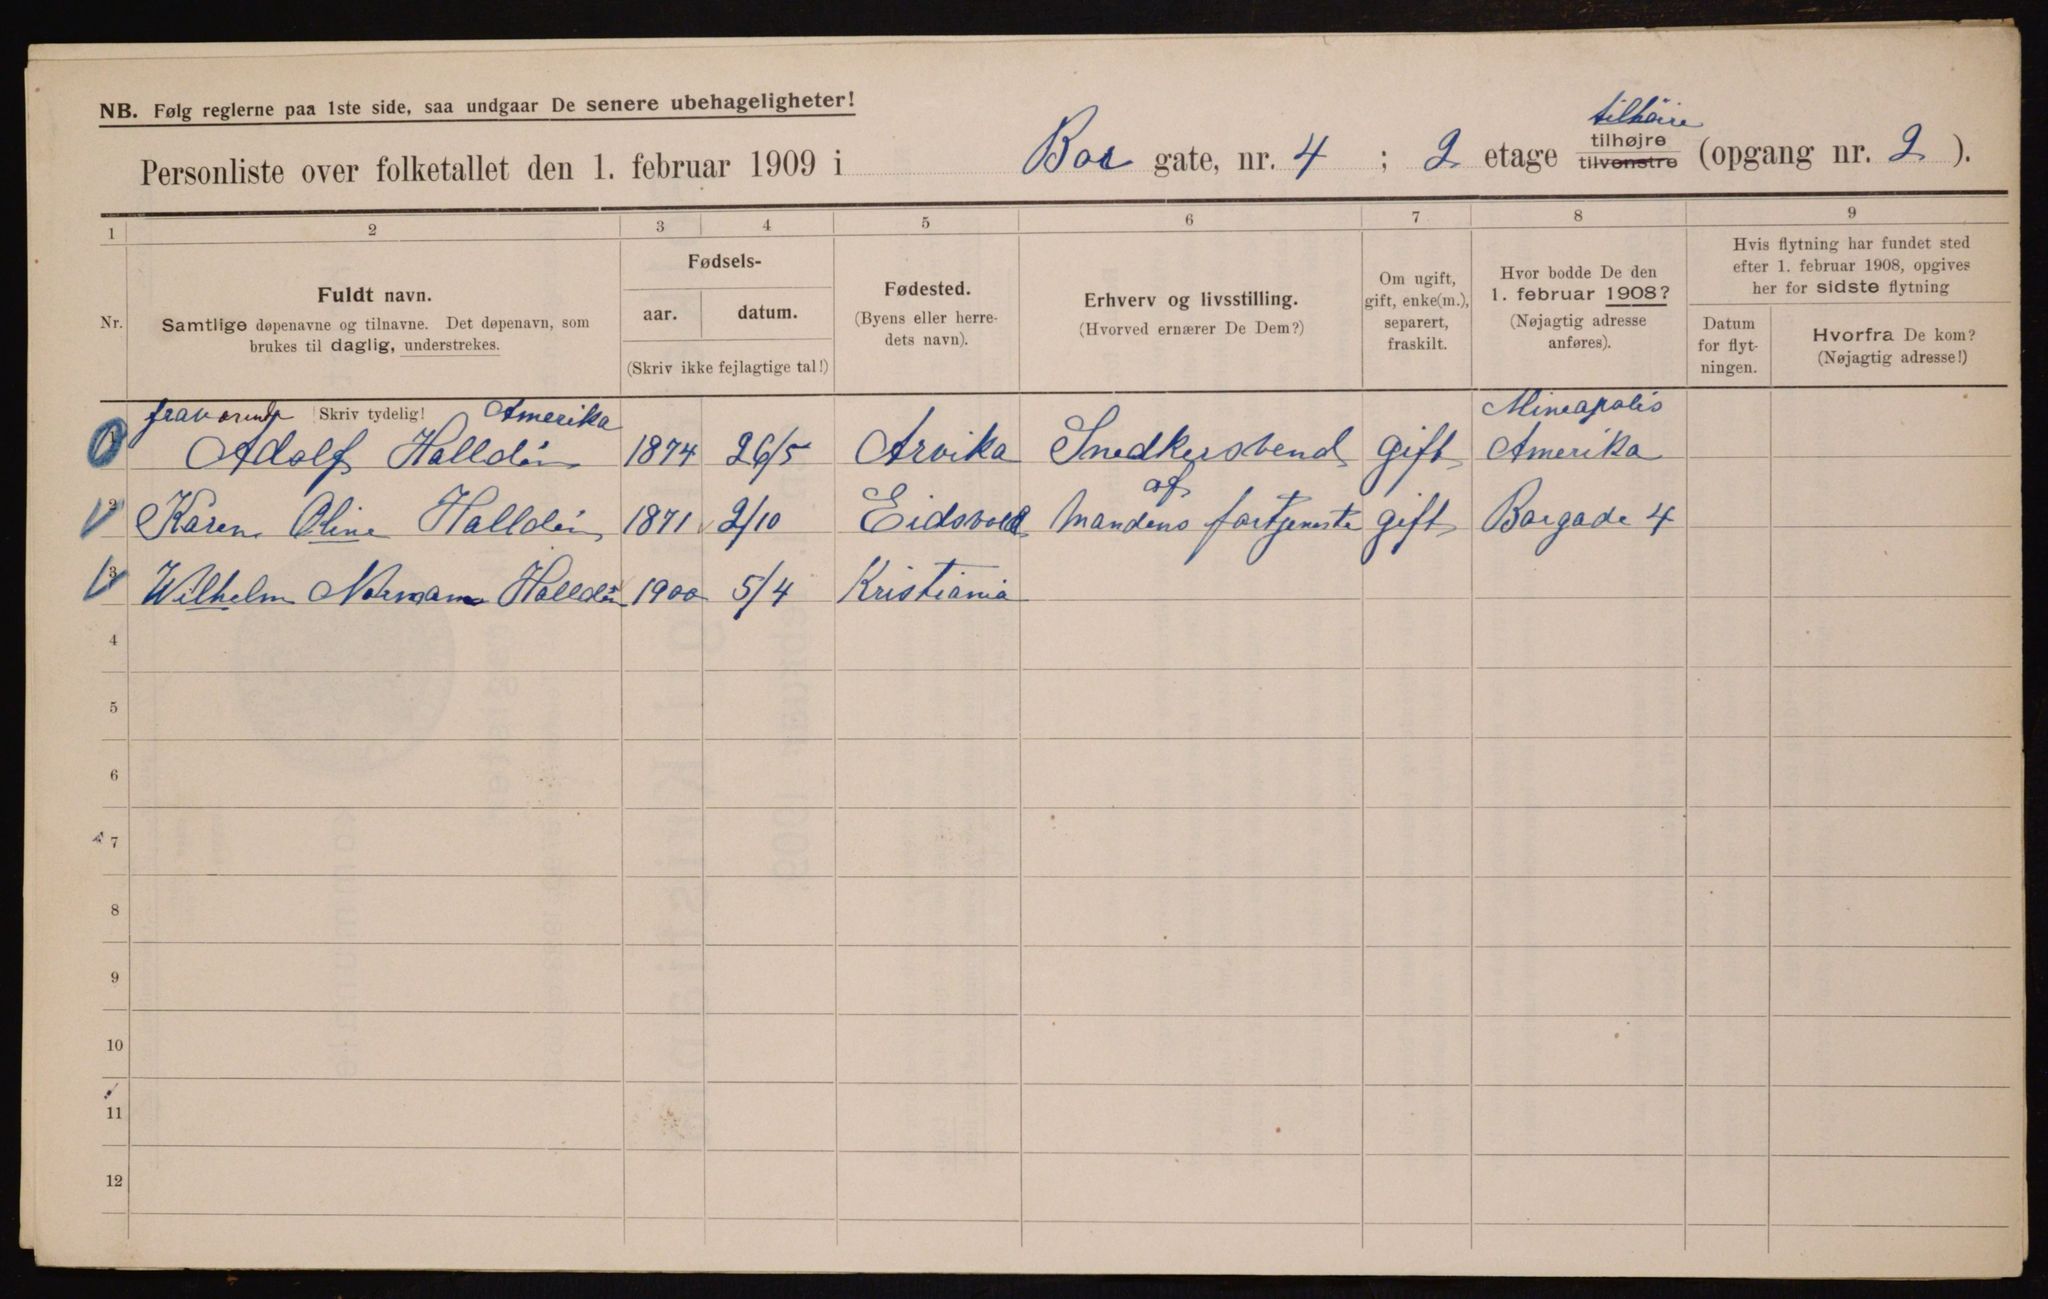 NB. Følg reglerne paa 1ste side, saa undgaar De senere ubehageligheter!
tilhøire
Personliste over folketallet den 1. februar 1909 i Bor gate, nr. 4 ; 2 etage tilhøjre tilvenstre (opgang nr. 2 ).
1 2 3 4 5 6 7 8 9
Nr.
Fuldt navn.
Samtlige døpenavne og tilnavne. Det døpenavn, som
brukes til daglig, understrekes.
Fødsels-
aar. datum.
(Skriv ikke fejlagtige tal!)
Fødested.
(Byens eller herre-
dets navn).
Erhverv og livsstilling.
(Hvorved ernærer De Dem?)
Om ugift,
gift, enke(m.),
separert,
fraskilt.
Hvor bodde De den
1. februar 1908?
(Nøjagtig adresse
anføres).
Hvis flytning har fundet sted
efter 1. februar 1908, opgives
her for sidste flytning
Datum
for flyt-
ningen.
Hvorfra De kom?
(Nøjagtig adresse!)
Skriv tydelig! Amerika Mineapolis
1 Adolf Halldén 1874 26/5 Arvika Snedkersvend gift Amerika
af
2 Karen Oline Halldén 1871 2/10 Eidsvold Mandens fortjeneste gift Borgade 4
3 Wilhelm Norman Halldén 1900 5/4 Kristiania
4
5
6
7
8
9
10
11
12